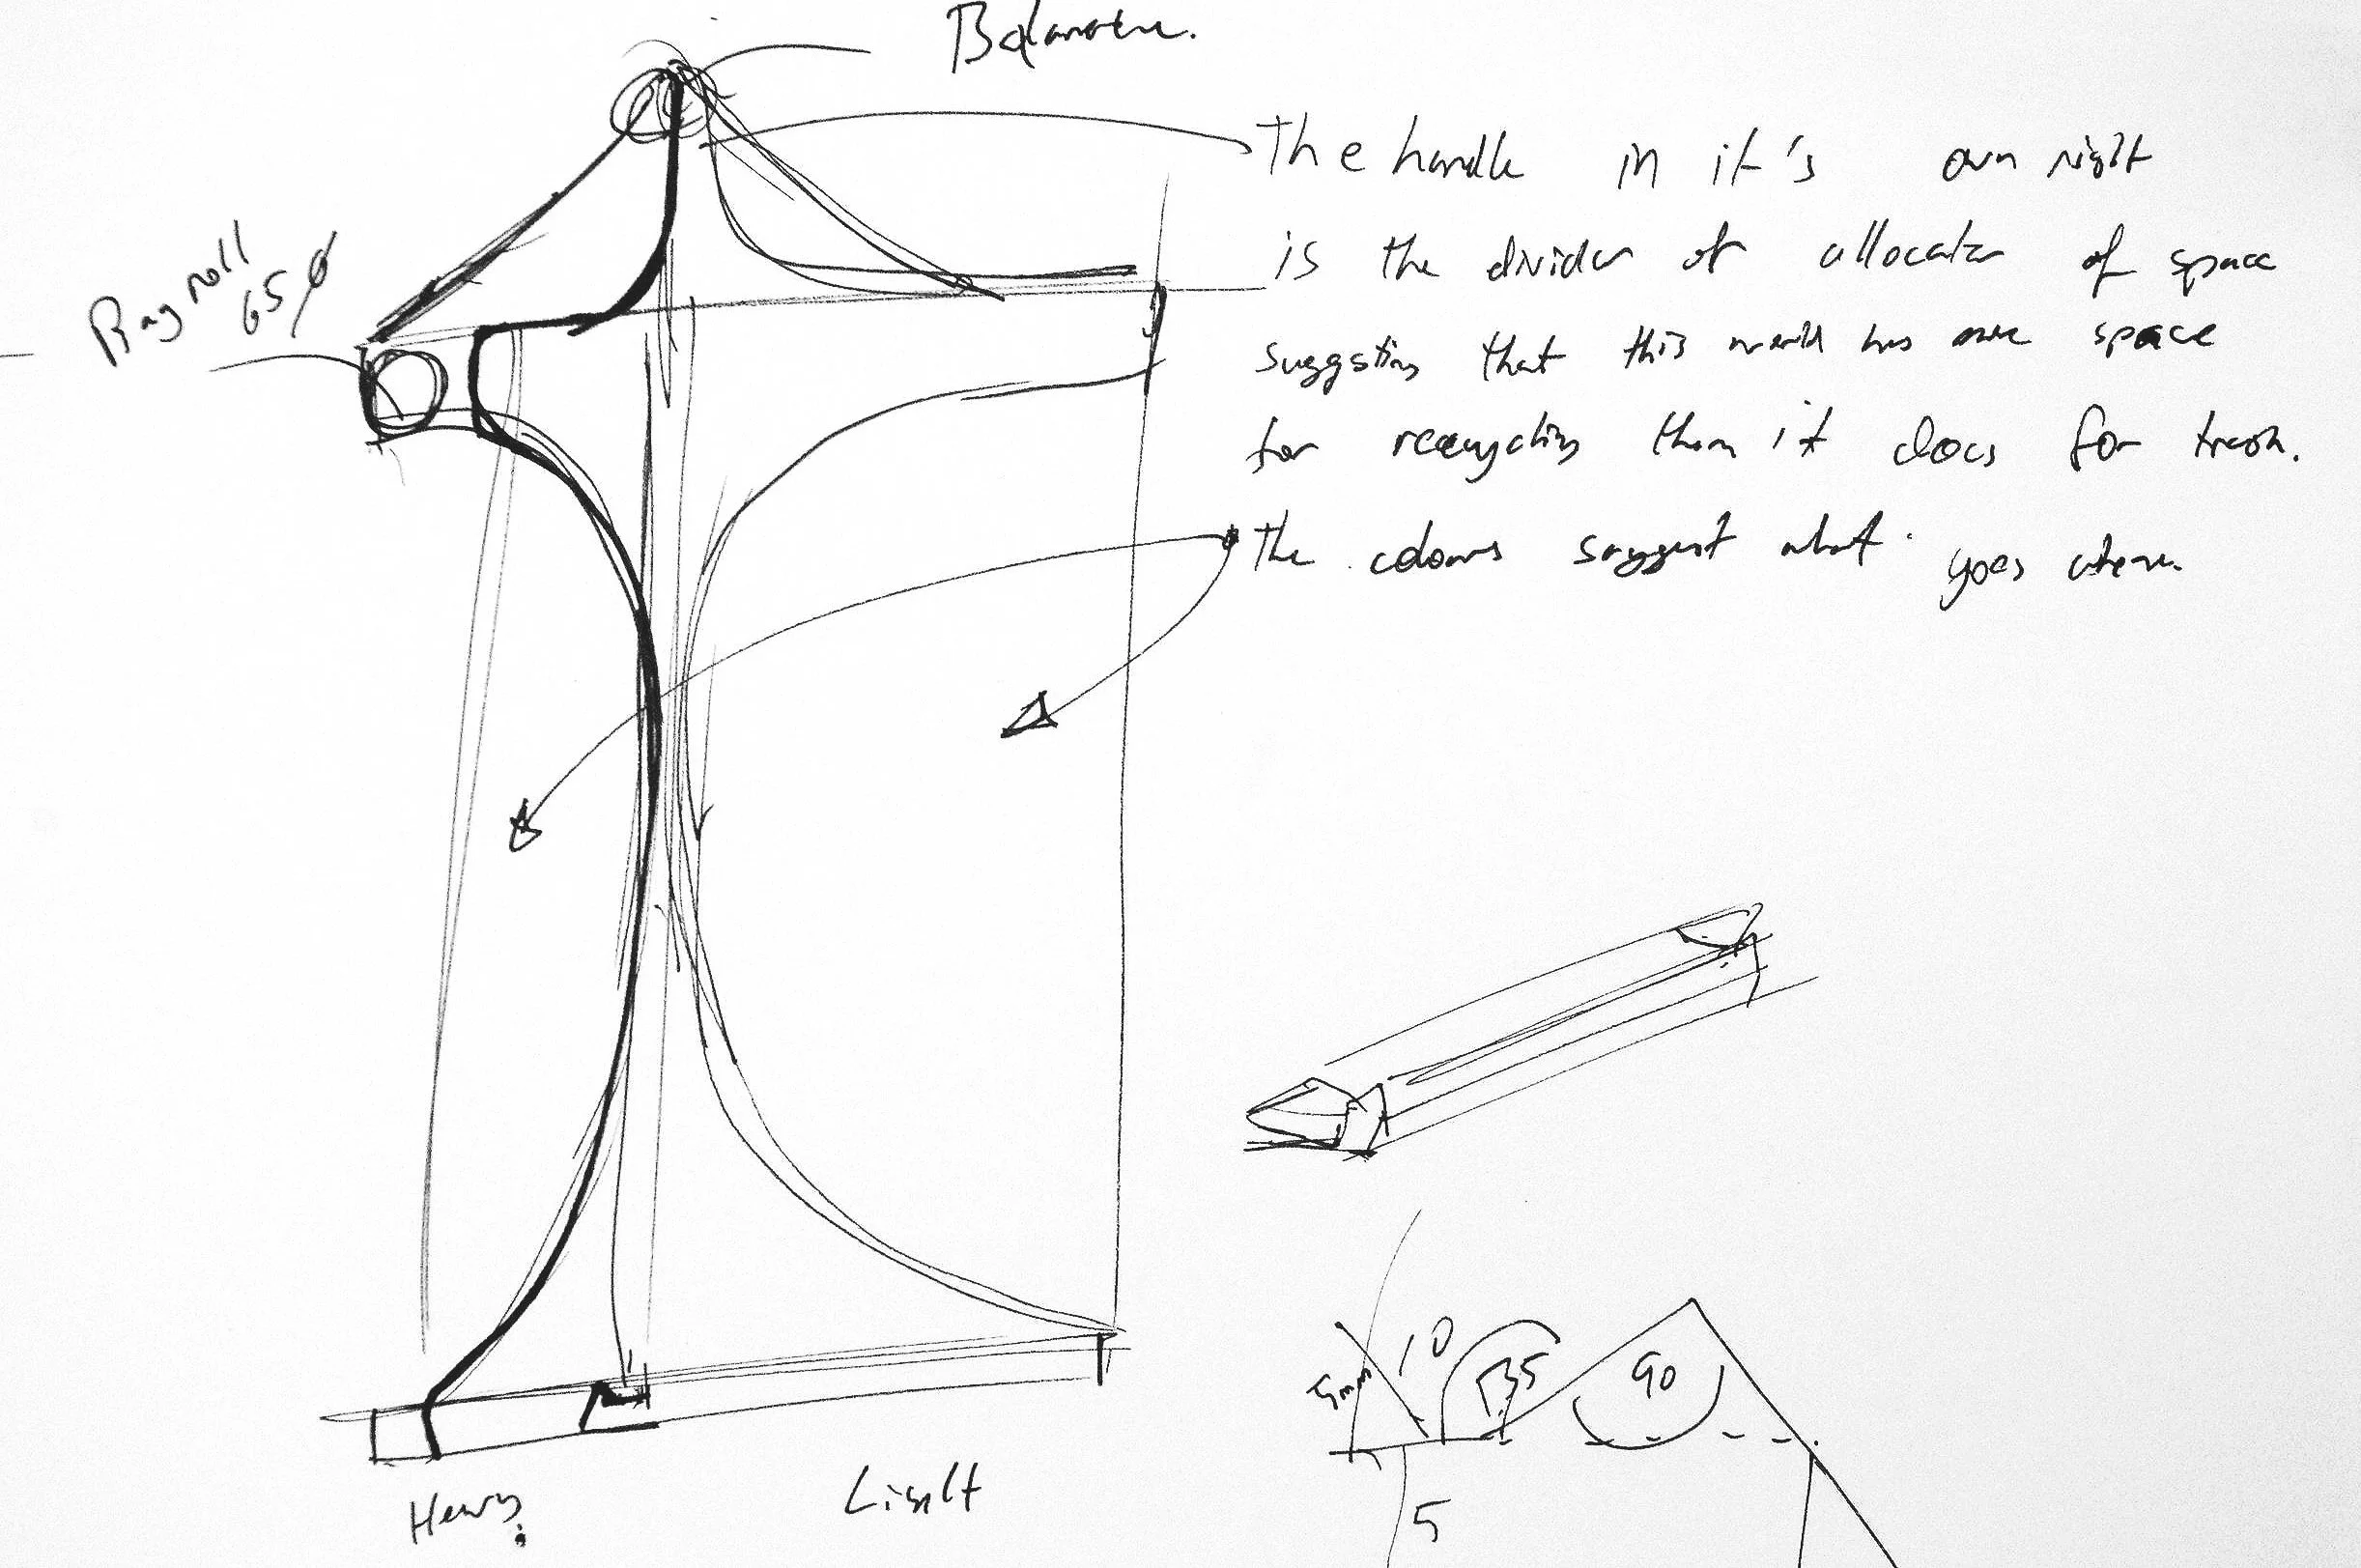 The handle in it's own right
is the divider of allocator of space
suggesting that this world has more space
for recycling then it does for trash.
The colours suggest what goes where.
Bag roll
65 ø
Heavy
Light
5mm
10
135
90
5